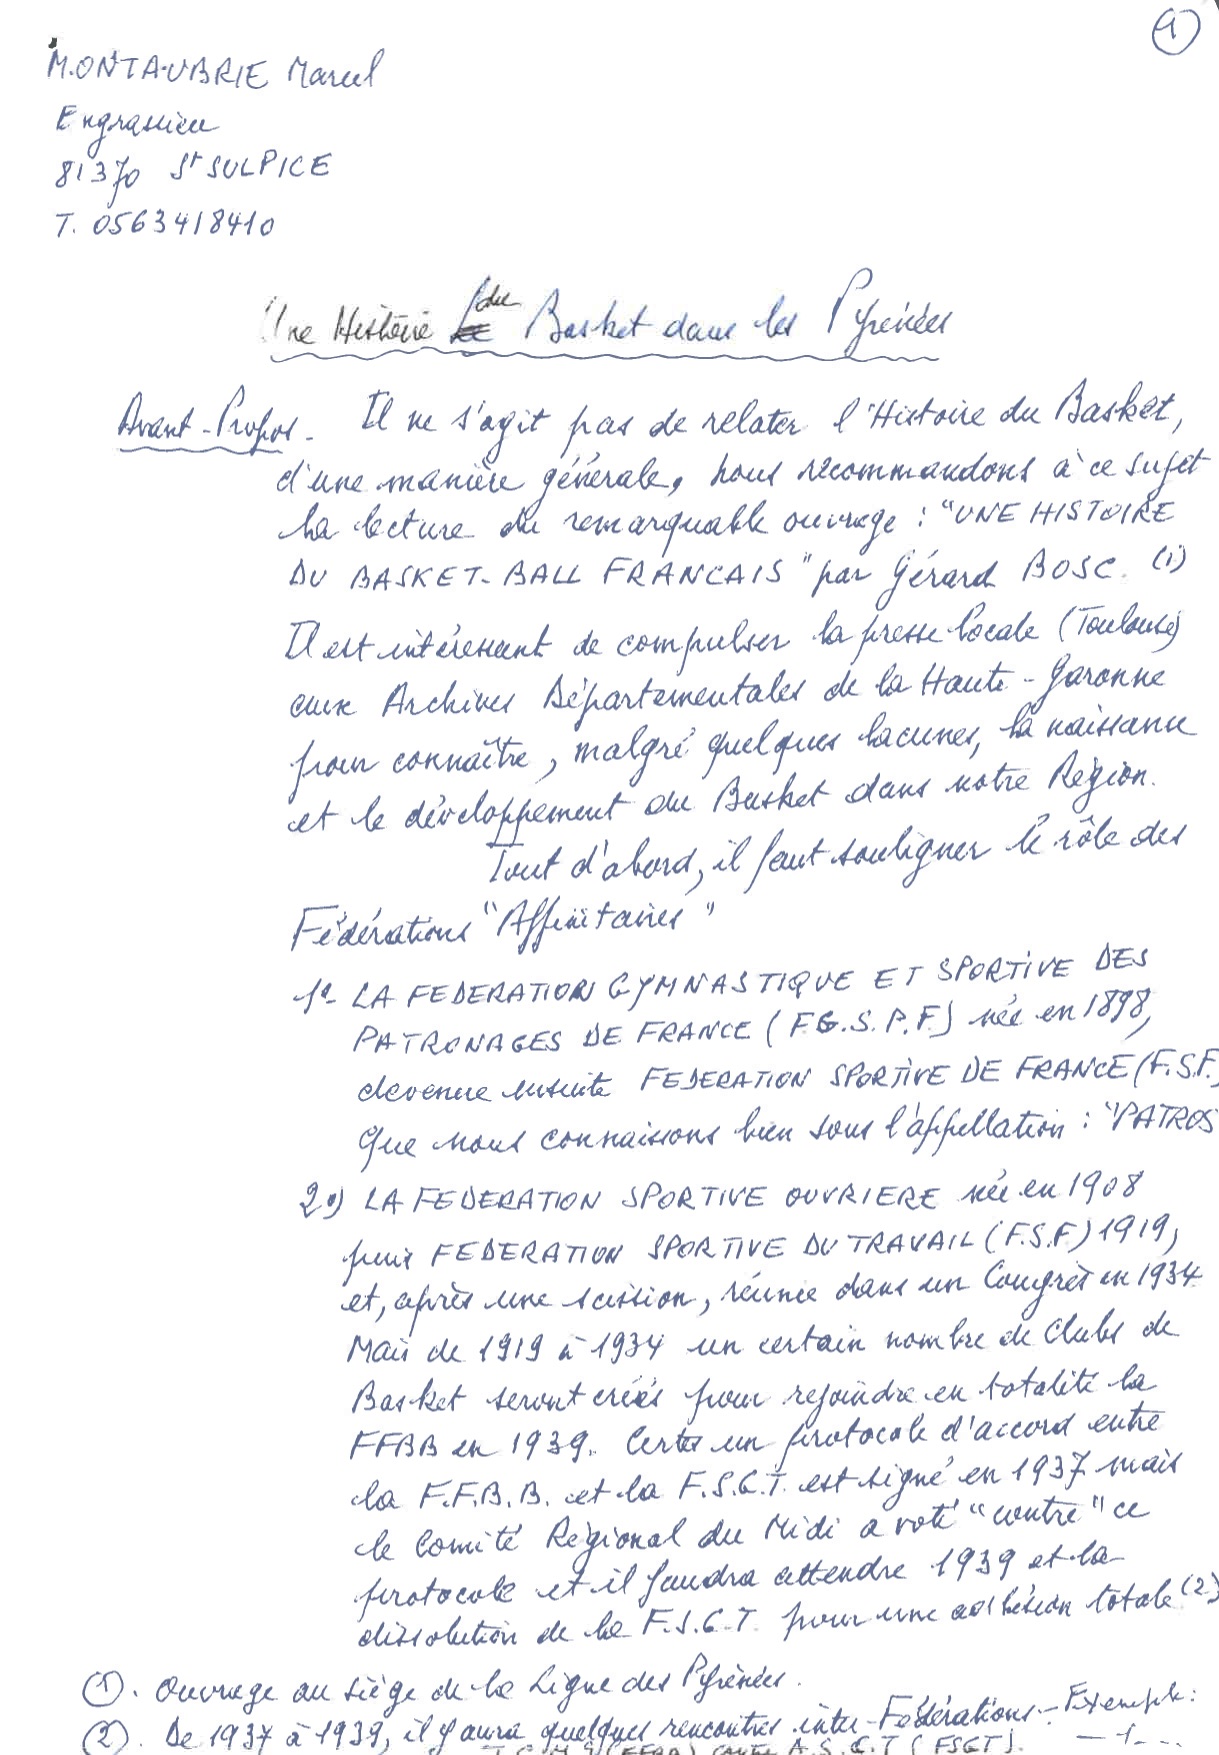 1
MONTAUBRIE Marcel
Engrassieu
81370 St SULPICE
T. 0563418410
Une Histoire du Basket dans les Pyrénées
Avant-Propos - Il ne s'agit pas de relater l'Histoire du Basket,
d'une manière générale, nous recommandons à ce sujet
la lecture du remarquable ouvrage : "UNE HISTOIRE
DU BASKET-BALL FRANCAIS" par Gérard BOSC. (1)
Il est intéressant de compulser la presse locale (Toulouse)
aux Archives Départementales de la Haute-Garonne
pour connaître, malgré quelques lacunes, la naissance
et le développement du Basket dans notre Région.
Tout d'abord, il faut souligner le rôle des
Fédérations "Affinitaires"
1°- LA FEDERATION GYMNASTIQUE ET SPORTIVE DES
PATRONAGES DE FRANCE (F.G.S.P.F.) née en 1898,
devenue ensuite FEDERATION SPORTIVE DE FRANCE (F.S.F.)
que nous connaissons bien sous l'appellation : "PATROS
2°) LA FEDERATION SPORTIVE OUVRIERE née en 1908
puis FEDERATION SPORTIVE DU TRAVAIL (F.S.F) 1919,
et, après une scission, réunie dans un Congrès en 1934
Mais de 1919 à 1934 un certain nombre de Clubs de
Basket seront créés pour rejoindre en totalité la
FFBB en 1939. Certes un protocole d'accord entre
la F.F.B.B. et la F.S.G.T. est signé en 1937 mais
le Comité Régional du Midi a voté "contre" ce
protocole et il faudra attendre 1939 et la
dissolution de la F.S.G.T. pour une adhésion totale (2)
(1). Ouvrage au siège de la Ligue des Pyrénées.
(2). De 1937 à 1939, il y aura quelques rencontres inter-Fédérations - Exemple :
A.S.G.T (FSGT). -1...